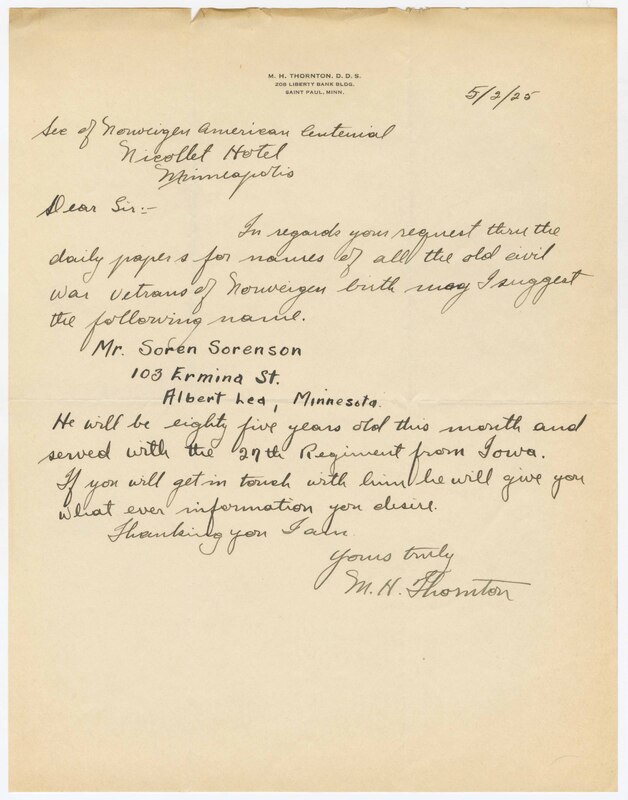 M. H. THORNTON, D. D. S.
208 LIBERTY BANK BLDG.
SAINT PAUL, MINN.
5/2/25
Sec of Norweigen American Centenial
Nicollet Hotel
Minneapolis
Dear Sir:-
In regards your request thru the
daily papers for names of all the old civil
war vetrans of Norweigen birth may I suggest
the following name.
Mr. Soren Sorenson
103 Ermina St.
Albert Lea, Minnesota.
He will be eighty five years old this month and
served with the 27th Regiment from Iowa.
If you will get in touch with him he will give you
what ever information you desire.
Thanking you I am
Yours truly
M. H. Thornton